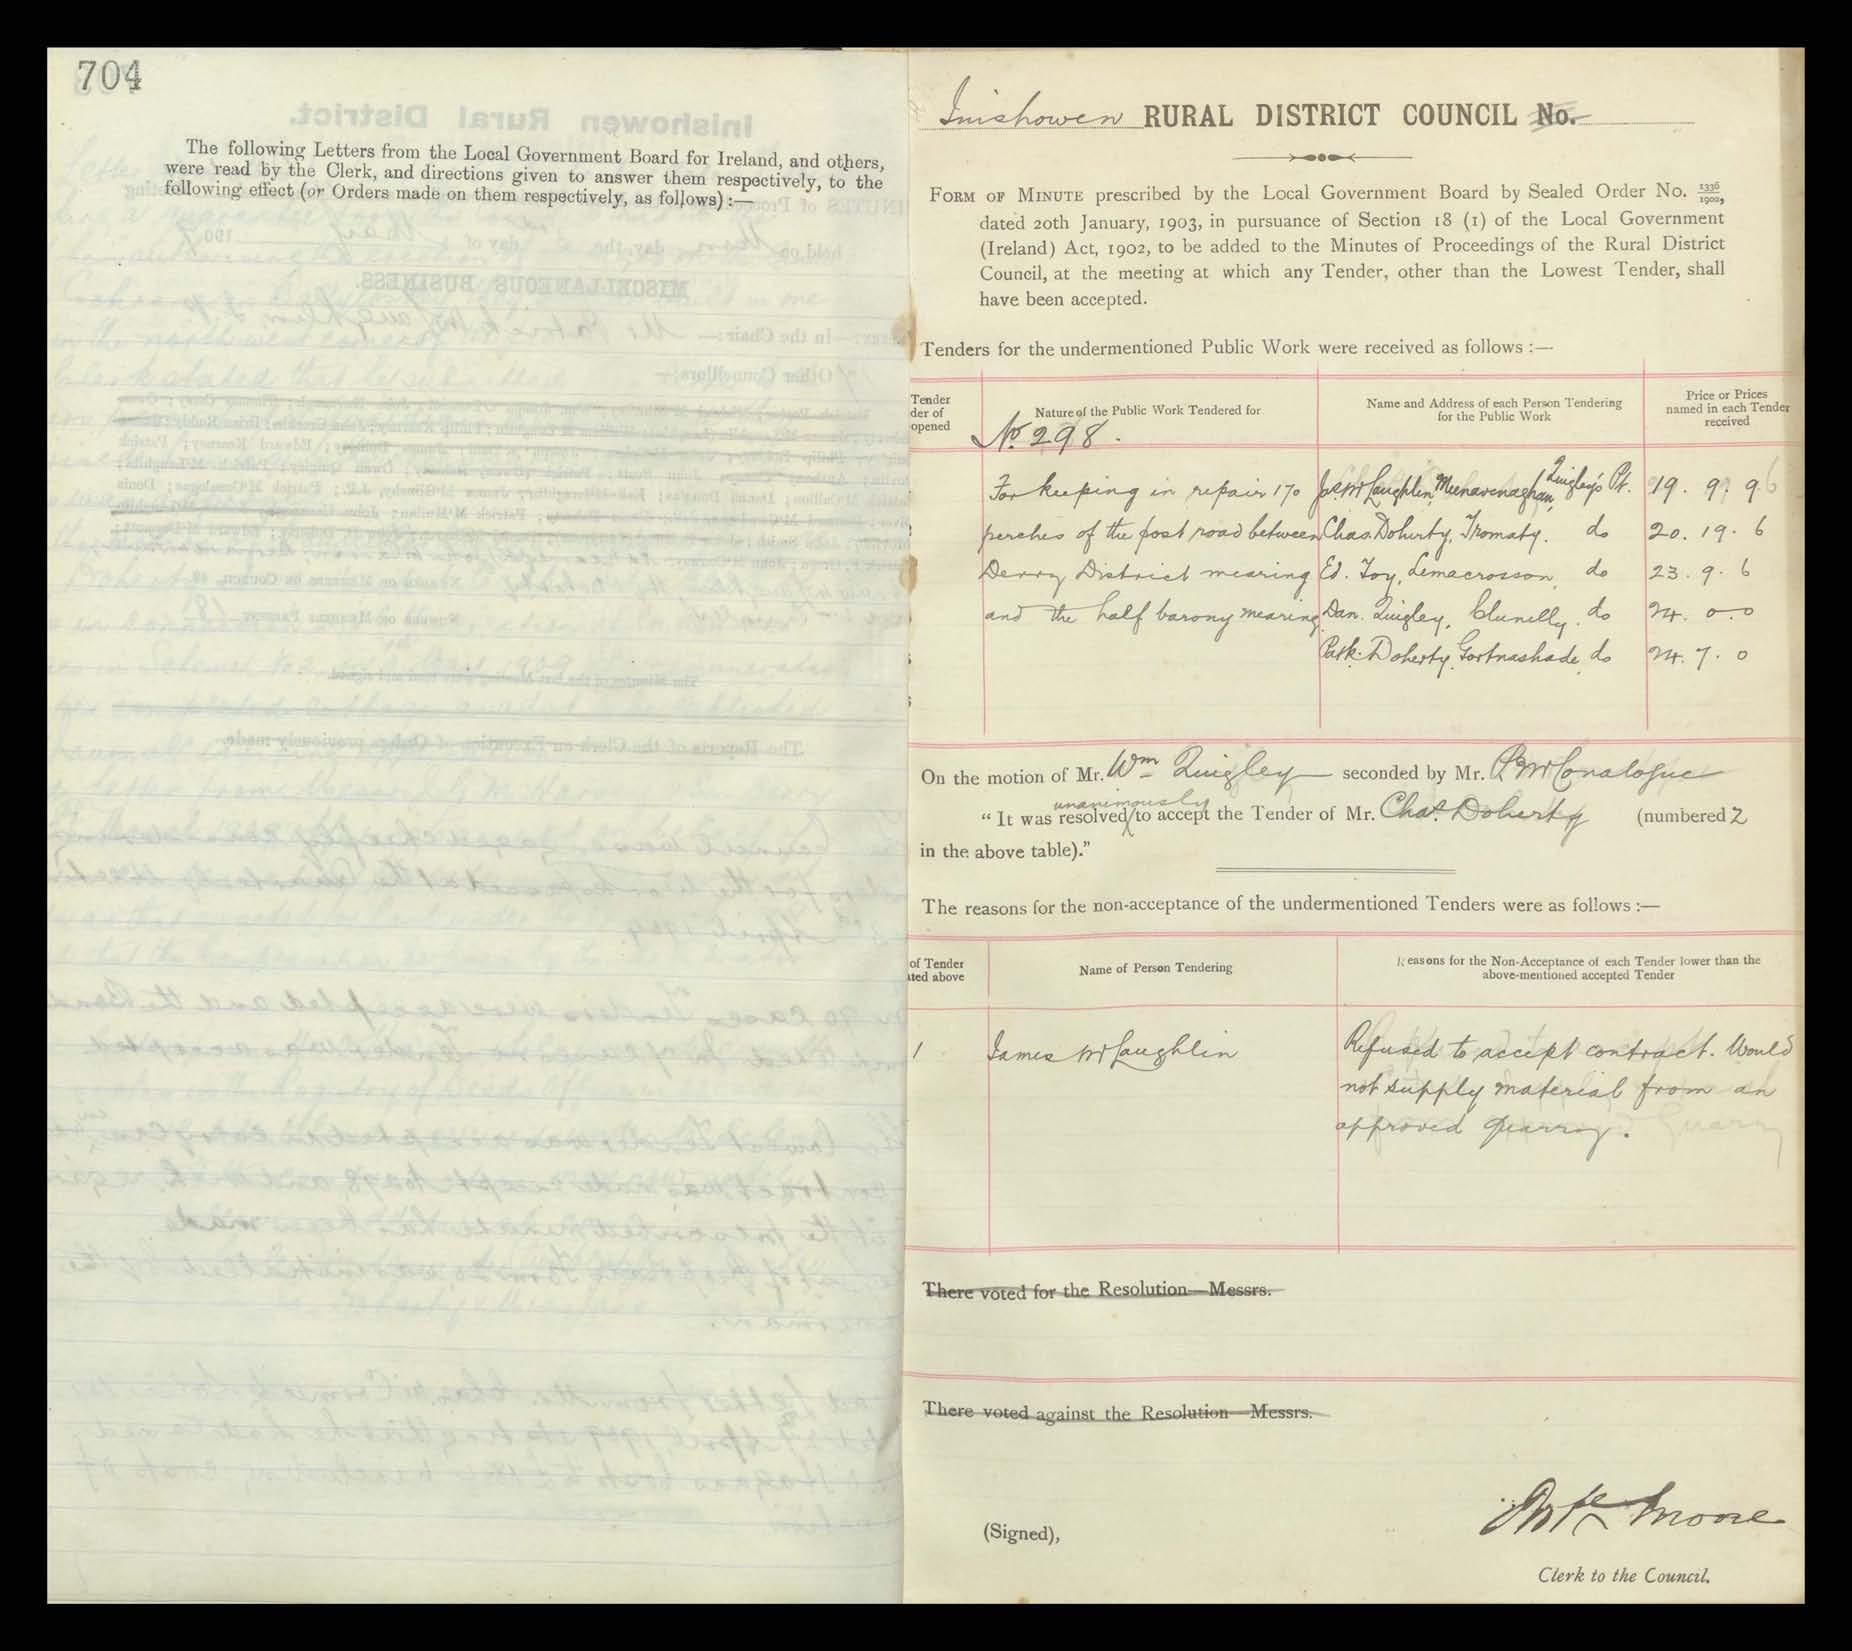 704
The following Letters from the Local Government Board for Ireland, and others,
were read by the Clerk, and directions given to answer them respectively, to the
following effect (or Orders made on them respectively, as follows) :—
Inishowen RURAL DISTRICT COUNCIL No.
FORM OF MINUTE prescribed by the Local Government Board by Sealed Order No. 1336/1902,
dated 20th January, 1903, in pursuance of Section 18 (1) of the Local Government
(Ireland) Act, 1902, to be added to the Minutes of Proceedings of the Rural District
Council, at the meeting at which any Tender, other than the Lowest Tender, shall
have been accepted.
Tenders for the undermentioned Public Work were received as follows :—
Tender
der of
opened
Nature of the Public Work Tendered for
No. 298.
Name and Address of each Person Tendering
for the Public Work
Price or Prices
named in each Tender
received
For keeping in repair 170 Jas. McLaughlin, Meenavenaghan, Quigley's Pt. 19. 9. 9
perches of the post road between Chas. Doherty, Tromaty. do 20. 19. 6
Derry District mearing Ed. Toy, Lemacrosson, do 23. 9. 6
and the half barony mearing Dan. Quigley, Clunelly. do 24. 0. 0
Patk. Doherty, Gortnashade, do 24. 7. 0
On the motion of Mr. Wm Quigley seconded by Mr. P. McConalogue
unanimously
“ It was resolved to accept the Tender of Mr. Chas. Doherty (numbered 2
in the above table).”
The reasons for the non-acceptance of the undermentioned Tenders were as follows :—
of Tender
ated above
Name of Person Tendering
Reasons for the Non-Acceptance of each Tender lower than the
above-mentioned accepted Tender
1 James McLaughlin Refused to accept contract. Would
not supply material from an
approved quarry.
There voted for the Resolution—Messrs.
There voted against the Resolution—Messrs.
(Signed),
Moore
Clerk to the Council.